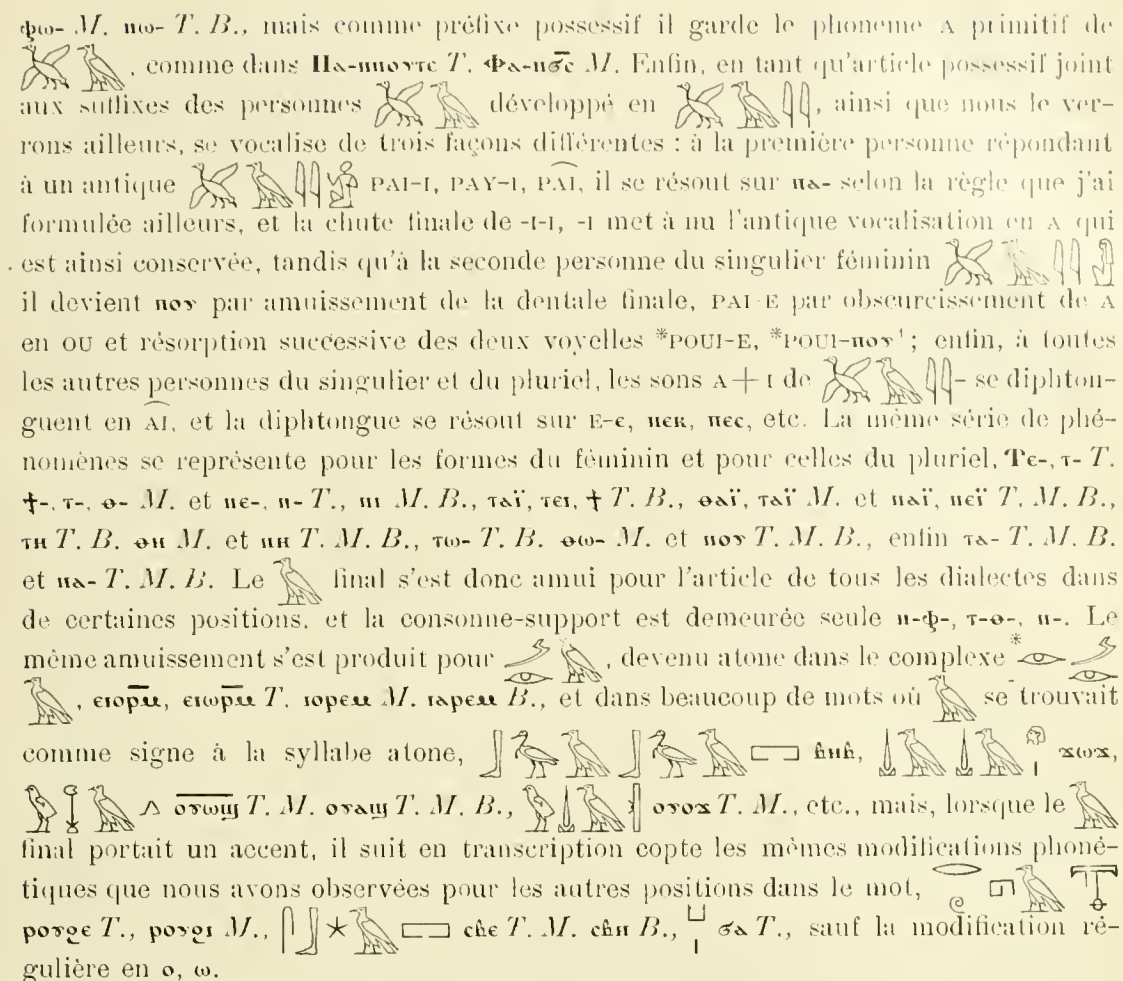 ⲫⲱ- M. ⲡⲱ- T. B., mais comme préfixe possessif il garde le phonème A primitif de
𓅮𓄿, comme dans Ⲡⲁ-ⲛⲛⲟⲩⲧⲉ T. Ⲫⲁ-ⲛϭ̅ⲥ̅ M. Enfin, en tant qu'article possessif joint
aux suffixes des personnes 𓅮𓄿 développé en 𓅮𓄿𓇌, ainsi que nous le ver-
rons ailleurs, se vocalise de trois façons différentes : à la première personne répondant
à un antique 𓅮𓄿𓇌𓀁 PAI-I, PAY-I, PAI, il se résout sur ⲡⲁ- selon la règle que j'ai
formulée ailleurs, et la chute finale de -I-I, -I met à nu l'antique vocalisation en A qui
est ainsi conservée, tandis qu'à la seconde personne du singulier féminin 𓅮𓄿𓇌
il devient ⲡⲟⲩ par amuissement de la dentale finale, PAI-E par obscurcissement de A
en OU et résorption successive des deux voyelles *POUI-E, *POUI-ⲡⲟⲩ¹; enfin, à toutes
les autres personnes du singulier et du pluriel, les sons A + I de 𓅮𓄿𓇌- se diphton-
guent en AI, et la diphtongue se résout sur E-ⲉ, ⲡⲉⲕ, ⲡⲉⲥ, etc. La même série de phé-
nomènes se représente pour les formes du féminin et pour celles du pluriel, Ⲧⲉ-, ⲧ- T.
ϯ-, ⲧ-, ⲑ- M. et ⲛⲉ-, ⲛ- T., ⲛⲓ M. B., ⲧⲁⲓ̈, ⲧⲉⲓ, ϯ T. B., ⲑⲁⲓ̈, ⲧⲁⲓ̈ M. et ⲛⲁⲓ̈, ⲛⲉⲓ̈ T. M. B.,
ⲧⲏ T. B. ⲑⲏ M. et ⲛⲏ T. M. B., ⲧⲱ- T. B. ⲑⲱ- M. et ⲛⲟⲩ T. M. B., enfin ⲧⲁ- T. M. B.
et ⲛⲁ- T. M. B. Le 𓄿 final s'est donc amui pour l'article de tous les dialectes dans
de certaines positions, et la consonne-support est demeurée seule ⲡ-ⲫ-, ⲧ-ⲑ-, ⲛ-. Le
même amuissement s'est produit pour 𓌳𓄿, devenu atone dans le complexe *𓁹𓌳
𓄿, ⲉⲓⲟⲣⲙ̅, ⲉⲓⲱⲣⲙ̅ T. ⲓⲟⲣⲉⲙ M. ⲓⲁⲣⲉⲙ B., et dans beaucoup de mots où 𓄿 se trouvait
comme signe à la syllabe atone, 𓃀𓅬𓄿𓃀𓅬𓄿𓈙 ⲃⲏⲃ, 𓍑𓄿𓍑𓄿𓁶𓏤 ϫⲱϫ,
𓅱𓆼𓄿𓂻 ⲟⲩⲱϣ T. M. ⲟⲩⲁϣ T. M. B., 𓅱𓍑𓄿𓏛 ⲟⲩⲟϫ T. M., etc., mais, lorsque le 𓄿
final portait un accent, il suit en transcription copte les mêmes modifications phoné-
tiques que nous avons observées pour les autres positions dans le mot, 𓂋𓏲𓉔𓄿𓇰
ⲣⲟⲩϩⲉ T., ⲣⲟⲩϩⲓ M., 𓋴𓃀𓇼𓄿𓈙 ⲥⲃⲉ T. M. ⲥⲃⲏ B., 𓂓𓏤 ϭⲁ T., sauf la modification ré-
gulière en ⲟ, ⲱ.